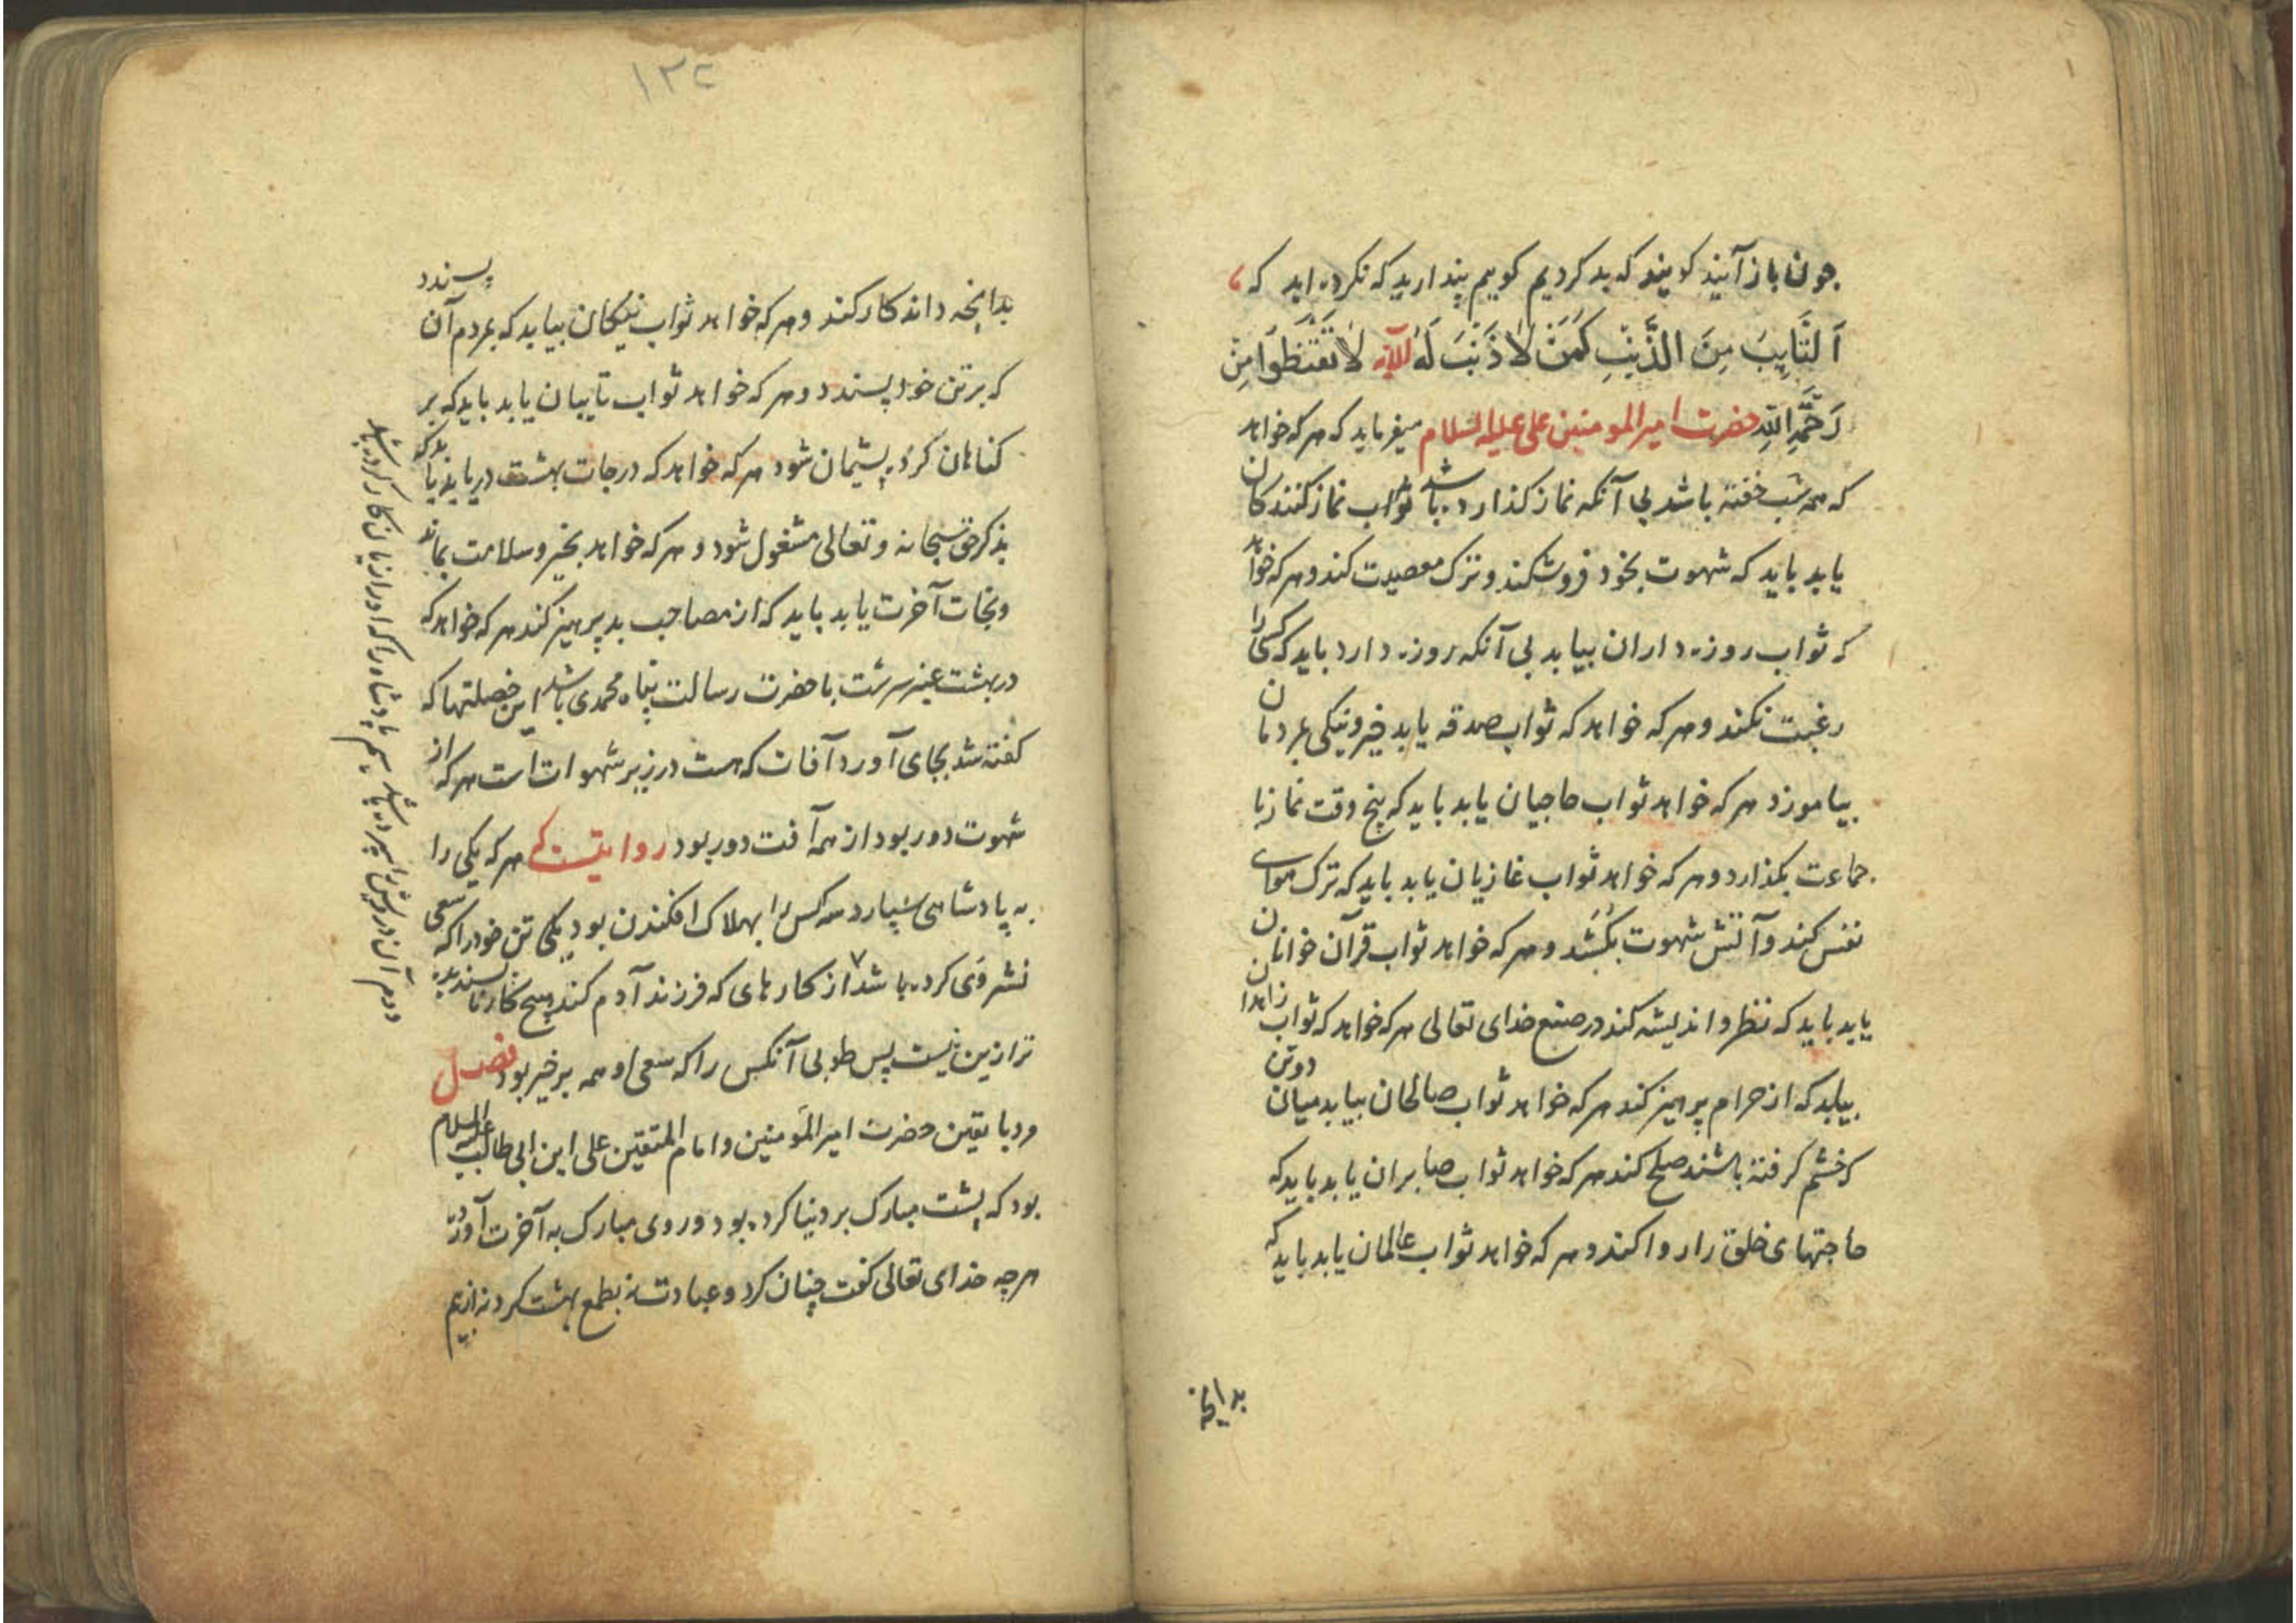 چون باز آیند کویند که بد کردیم کوییم پندارید که نکرده اید که
اَلتَّایِبُ مِنَ الذَّنْبِ کَمَنْ لاٰ ذَنْبَ لَهُ الآیه لاٰ تَقْنَطُوا مِنْ
رَحْمَةِ اللّٰهِ حضرت امیر المومنین علی علیه السلام میفرماید که هر که خواهد
که همه شب خفته باشد بی آنکه نماز کذارده باشد ثواب نماز کنندکان
یابد باید که شهوت بخود فرو شکند و ترک معصیت کند و هر که خواهد
که ثواب روزه داران بیابد بی آنکه روزه دارد باید که کسی را
رغبت نکند و هر که خواهد که ثواب صدقه یابد خیر و نیکی بمردمان
بیاموزد هر که خواهد ثواب حاجیان یابد باید که پنج وقت نماز با
جماعت بکذارد و هر که خواهد ثواب غازیان یابد باید که ترک هوای
نفس کند و آتش شهوت بکُشَد و هر که خواهد ثواب قرآن خوانان
یابد باید که نظر و اندیشه کند در صنع خدای تعالی هر که خواهد که ثواب زاهدان
بیابد که از حرام پرهیز کند هر که خواهد ثواب صالحان بیابد میان دو تن
که خشم کرفته باشند صلح کند هر که خواهد ثواب صابران یابد باید که
حاجتهای خلق را روا کند و هر که خواهد ثواب عالمان یابد باید که
بدانچه
۱۳۲
بدانچه داند کار کند و هر که خواهد ثواب نیکان بیابد که بمردم آن پسندد
که بر تن خود پسندد و هر که خواهد ثواب تایبان یابد باید که بر
کناهان کرده پشیمان شود هر که خواهد که درجات بهشت دریابد باید که
بذکر حق سبحانه و تعالی مشغول شود و هر که خواهد بخیر و سلامت بماند
و نجات آخرت یابد باید که از مصاحب بد پرهیز کند هر که خواهد که
در بهشت عنبر سرشت با حضرت رسالت پناه محمدی باشد این خصلتها که
کفته شد بجای آورد آفات که هست در زیر شهوات است هر که از
شهوت دور بود از همه آفت دور بود روایتست که هر که یکی را
به پادشاهی سپارد سه کس را بهلاک افکندن بود یکی تن خود را که سعی
نشر وَی کرده باشد از کارهای که فرزند آدم کند هیچ کار ناپسندیده
تر ازین نیست پس طوبی آنکس را که سعی او همه بر خیر بود فصل
مرد با یقین حضرت امیر المؤمنین و امام المتقین علی ابن ابی طالب علیه السلام
بود که پشت مبارک بر دنیا کرده بود و روی مبارک به آخرت آورده
هر چه خدای تعالی کفت چنان کرد و عبادت نه بطمع بهشت کرد نه از بیم
دوم آن درویش را سپرده باشد سیم پادشاه را که او را زیان کار کرده باشد